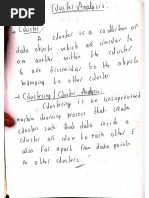 Cluster Analysis :
→ Cluster :
A cluster is a collection of
data objects which are similar to
one another within the cluster
& are dissimilar to the objects
belonging to other cluster.
→ Clustering / Cluster Analysis :
Clustering is an unsupervised
machine learning process that create
cluster such that data inside a
cluster are close to each other &
also far apart from data points
in other clusters.